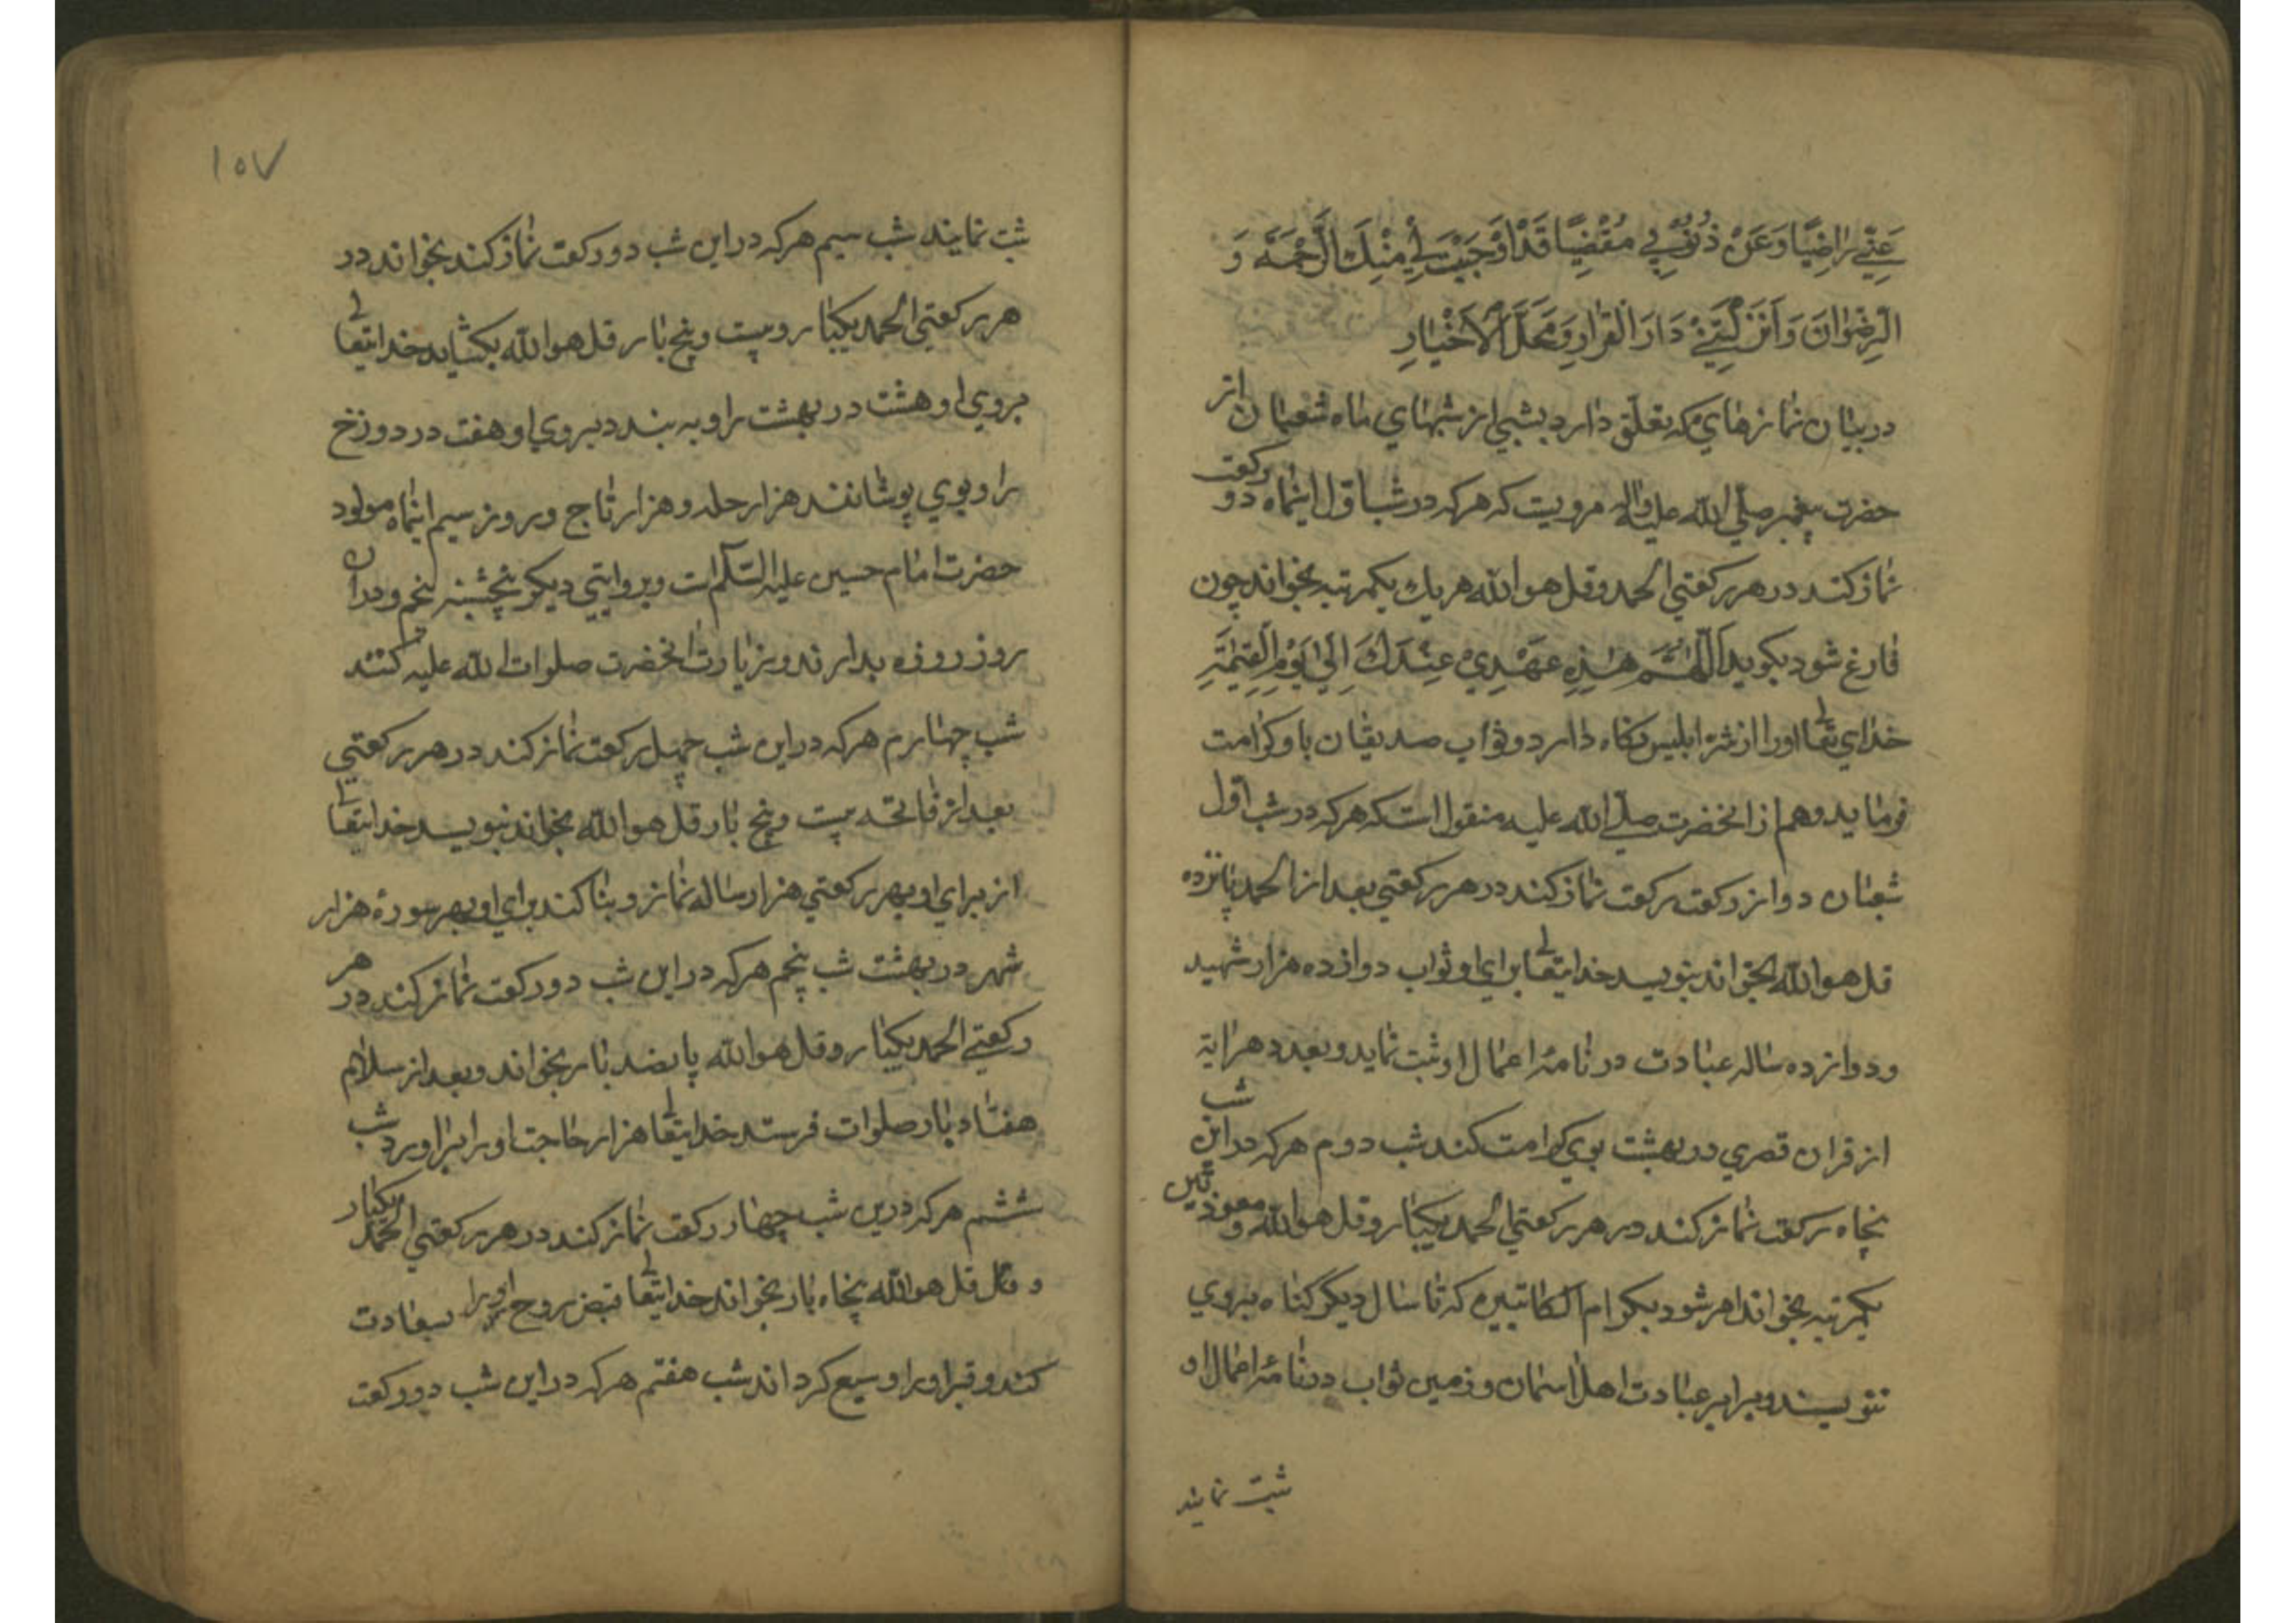 عَنِّي رَاضِيًا وَعَنْ ذُنُوبِي مُغْضِيًا قَدْ اَوْجَبْتَ لِي مِنْكَ الرَّحْمَةَ وَ
الرِّضْوَانَ وَاَنْزَلْتَنِي دَارَ الْقَرَارِ وَمَحَلَّ الْاَخْيَارِ
در بیان نمازهای که تعلق دارد بشبی از شبهای ماه شعبان از
حضرت پیغمبر صلی الله علیه واله مرویست که هرکه در شب اول اینماه دو رکعت
نماز کند در هر رکعتی الحمد و قل هو الله هر یك یکمرتبه بخواند چون
فارغ شود بکوید اَللّٰهُمَّ هٰذِهِ عَهْدِيْ عِنْدَكَ اِلٰي يَوْمِ الْقِيٰمَةِ
خدای تعا اورا از شر ابلیس نکاه دارد و ثواب صدیقان باو کرامت
فرماید و هم از انحضرت صلی الله علیه منقول است که هرکه در شب اول
شعبان دوازده رکعت نماز کند در هر رکعتی بعد از الحمد پانزده
قل هو الله بخواند بنویسد خدایتعا برای او ثواب دوازده هزار شهید
و دوازده ساله عبادت در نامهٔ اعمال او ثبت نماید و بعدد هر ایة
از قران قصری در بهشت بوی کرامت کند شب دوم هرکه در این شب
پنجاه رکعت نماز کند در هر رکعتی الحمد یکبار و قل هو الله و معوذتین
یکمرتبه بخواند امر شود بکرام الکاتبین که تا سال دیگر کناه بروی
ننویسند و برابر عبادت اهل اسمان و زمین ثواب در نامهٔ اعمال او
ثبت نمایند
۱۵۷
ثبت نمایند شب سیم هرکه در این شب دو رکعت نماز کند بخواند در
هر رکعتی الحمد یکبار و بیست و پنج بار قل هو الله بکشاید خدایتعا
بروی او هشت در بهشت را و به بندد بروی او هفت در دوزخ
را و بوی پوشانند هزار حله و هزار تاج و بروز سیم اینماه مولود
حضرت امام حسین علیه السلام است و بروایتی دیکر پنجشنبه پنجم و در ان
روز روزه بدارند و زیارت انحضرت صلوات الله علیه کنند
شب چهارم هرکه در این شب چهل رکعت نماز کند در هر رکعتی
بعد از فاتحه بیست و پنج بار قل هو الله بخواند بنویسد خدایتعا
از برای او بهر رکعتی هزار ساله نماز و بنا کند برای او بهر سورهٔ هزار
شهر در بهشت شب پنجم هرکه در این شب دو رکعت نماز کند در هر
رکعتی الحمد یکبار و قل هو الله پانصد بار بخواند و بعد از سلام
هفتاد بار صلوات فرستد خدایتعا هزار حاجت او را براورد شب
ششم هرکه درین شب چهار رکعت نماز کند در هر رکعتی الحمد یکبار
و قل هو الله پنجاه بار بخواند خدایتعا قبض روح او را بسعادت
کند و قبر او را وسیع کرداند شب هفتم هرکه در این شب دو رکعت